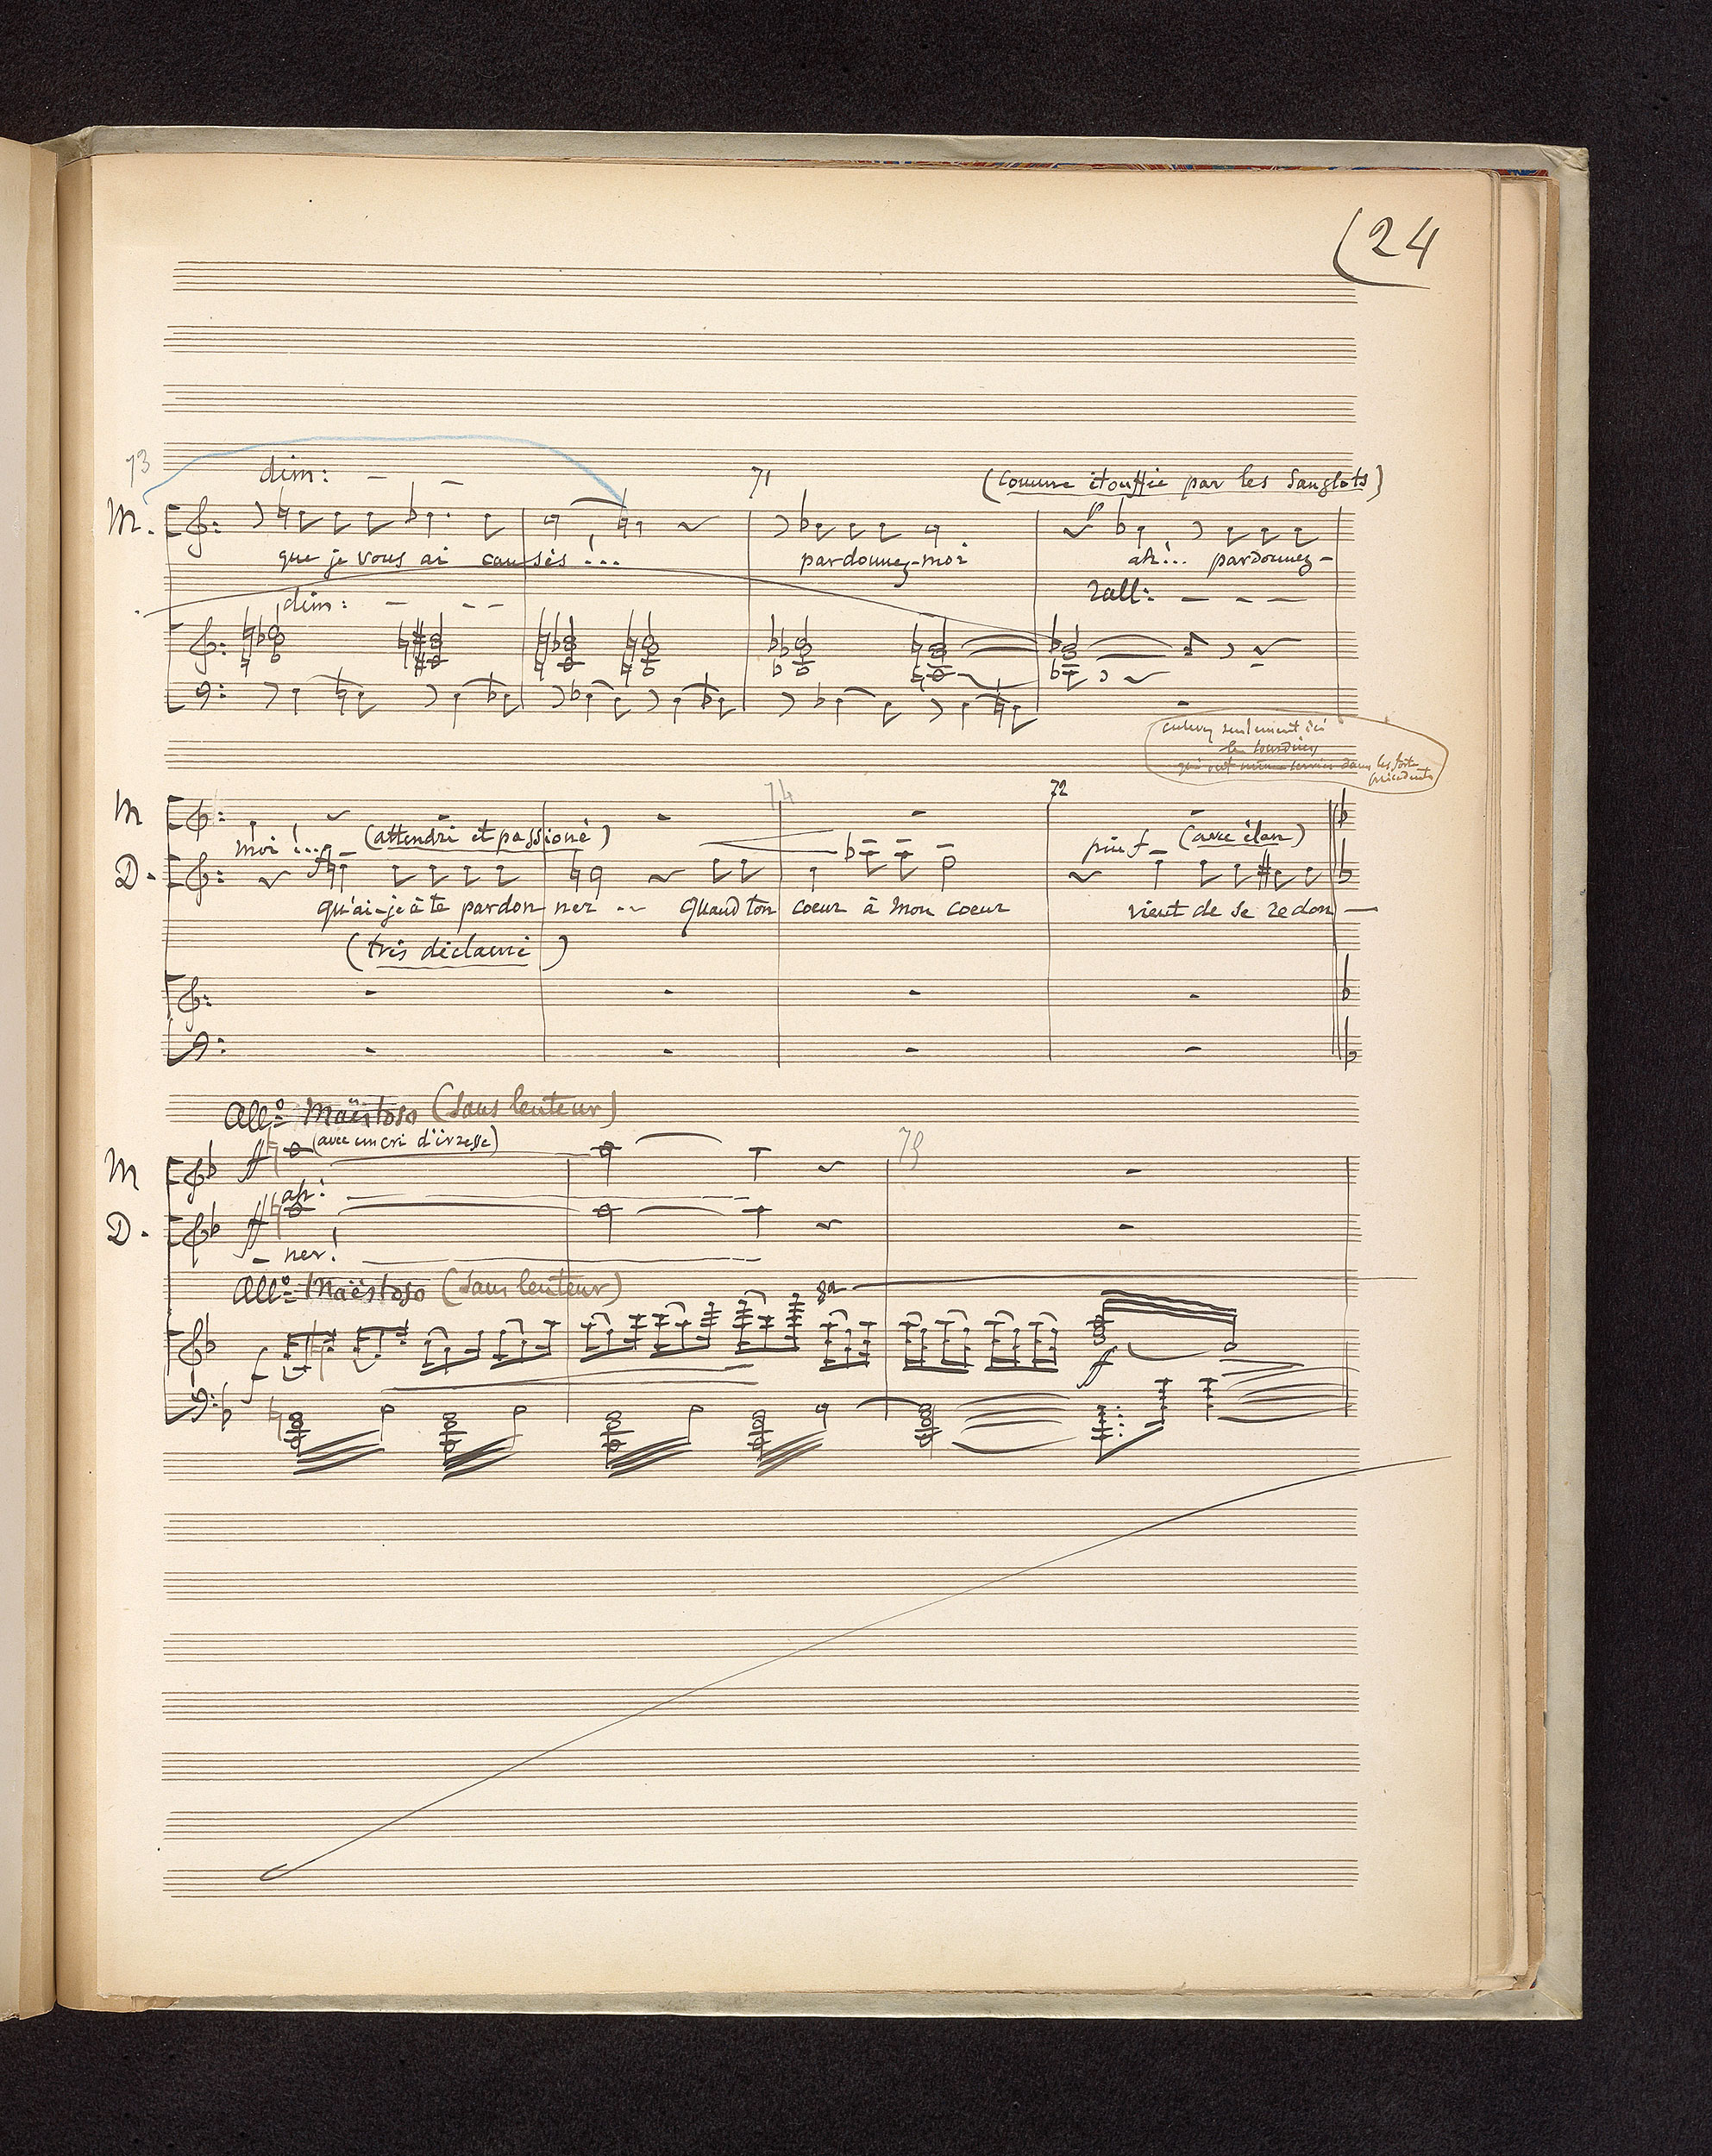 24
73 dim: 71 (comme étouffée par les sanglots)
M.
que je vous ai causés !... pardonnez-moi ah!... pardonnez-
dim: rall:
enlevez seulement ici
les sourdines
dans les forte
précédents
74 72
M
moi !... (attendri et passioné) più f (avec élan)
D.
qu'ai-je à te pardon ner -- quand ton coeur à mon coeur vient de se redon
(très déclamé)
All° Maëstoso (sans lenteur)
M ff (avec un cri d'ivresse)
ah!
D. ff
- ner!
All° Maëstoso (sans lenteur) 8a
f f